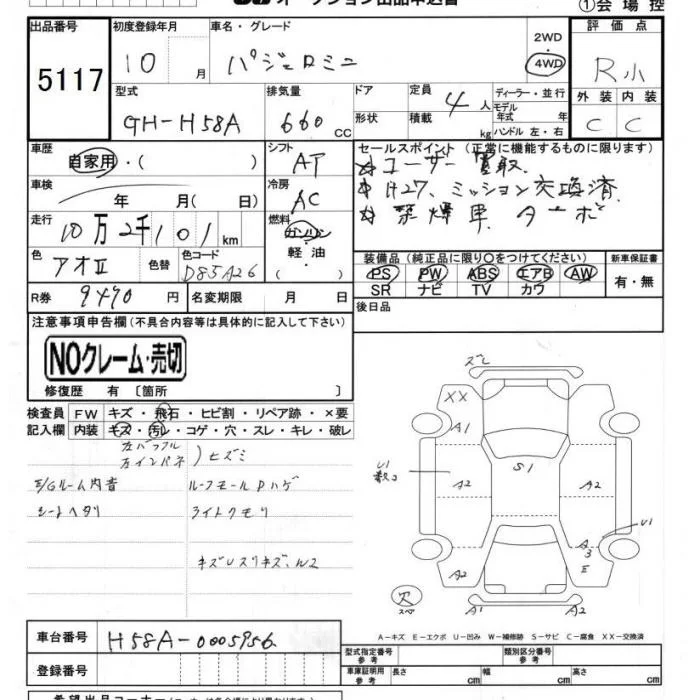 オークション出品申込書
①会場控
出品番号 5117
初度登録年月 10 月
車名・グレード パジェロミニ
2WD
4WD
評価点 R小
型式 GH-H58A
排気量 660 CC
ドア
形状
定員 4人
積載 kg
ディーラー・並行
モデル
年式 年
ハンドル 左・右
外装 内装
C C
車歴 自家用・( )
シフト AT
セールスポイント(正常に機能するものに限ります)
☆ユーザー買取
☆H27、ミッション交換済
☆禁煙車 ターボ
車検 年 月( 日)
冷房 AC
走行 10万2千101km
燃料 ガソリン
軽油
( )
色 アオII
色替
色コード D85A26
装備品(純正品に限り〇をつけてください)
PS PW ABS エアB AW
SR ナビ TV カワ
新車保証書
有・無
R券 9470 円
名変期限 月 日
後日品
注意事項申告欄(不具合内容等は具体的に記入して下さい)
NOクレーム・売切
修復歴 有〔箇所 〕
検査員 FW キズ・飛石・ヒビ割・リペア跡・×要
記入欄 内装 キズ・汚レ・コゲ・穴・スレ・キレ・破レ
左インパネ ヒズミ
E/Gルーム内音 ルーフモールPハゲ
シートヘタリ ライトクモリ
ズレ
XX
A1
U1
A2
S1
A2
U1
A3
E
A2
欠
スペア
A1
A2
A-キズ E-エクボ U-凹み W-補修跡 S-サビ C-腐食 XX-交換済
車台番号 H58A-0005956
登録番号
型式指定番号
参考
類別区分番号
参考
車庫証明用
参考
長さ cm 幅 cm 高さ cm